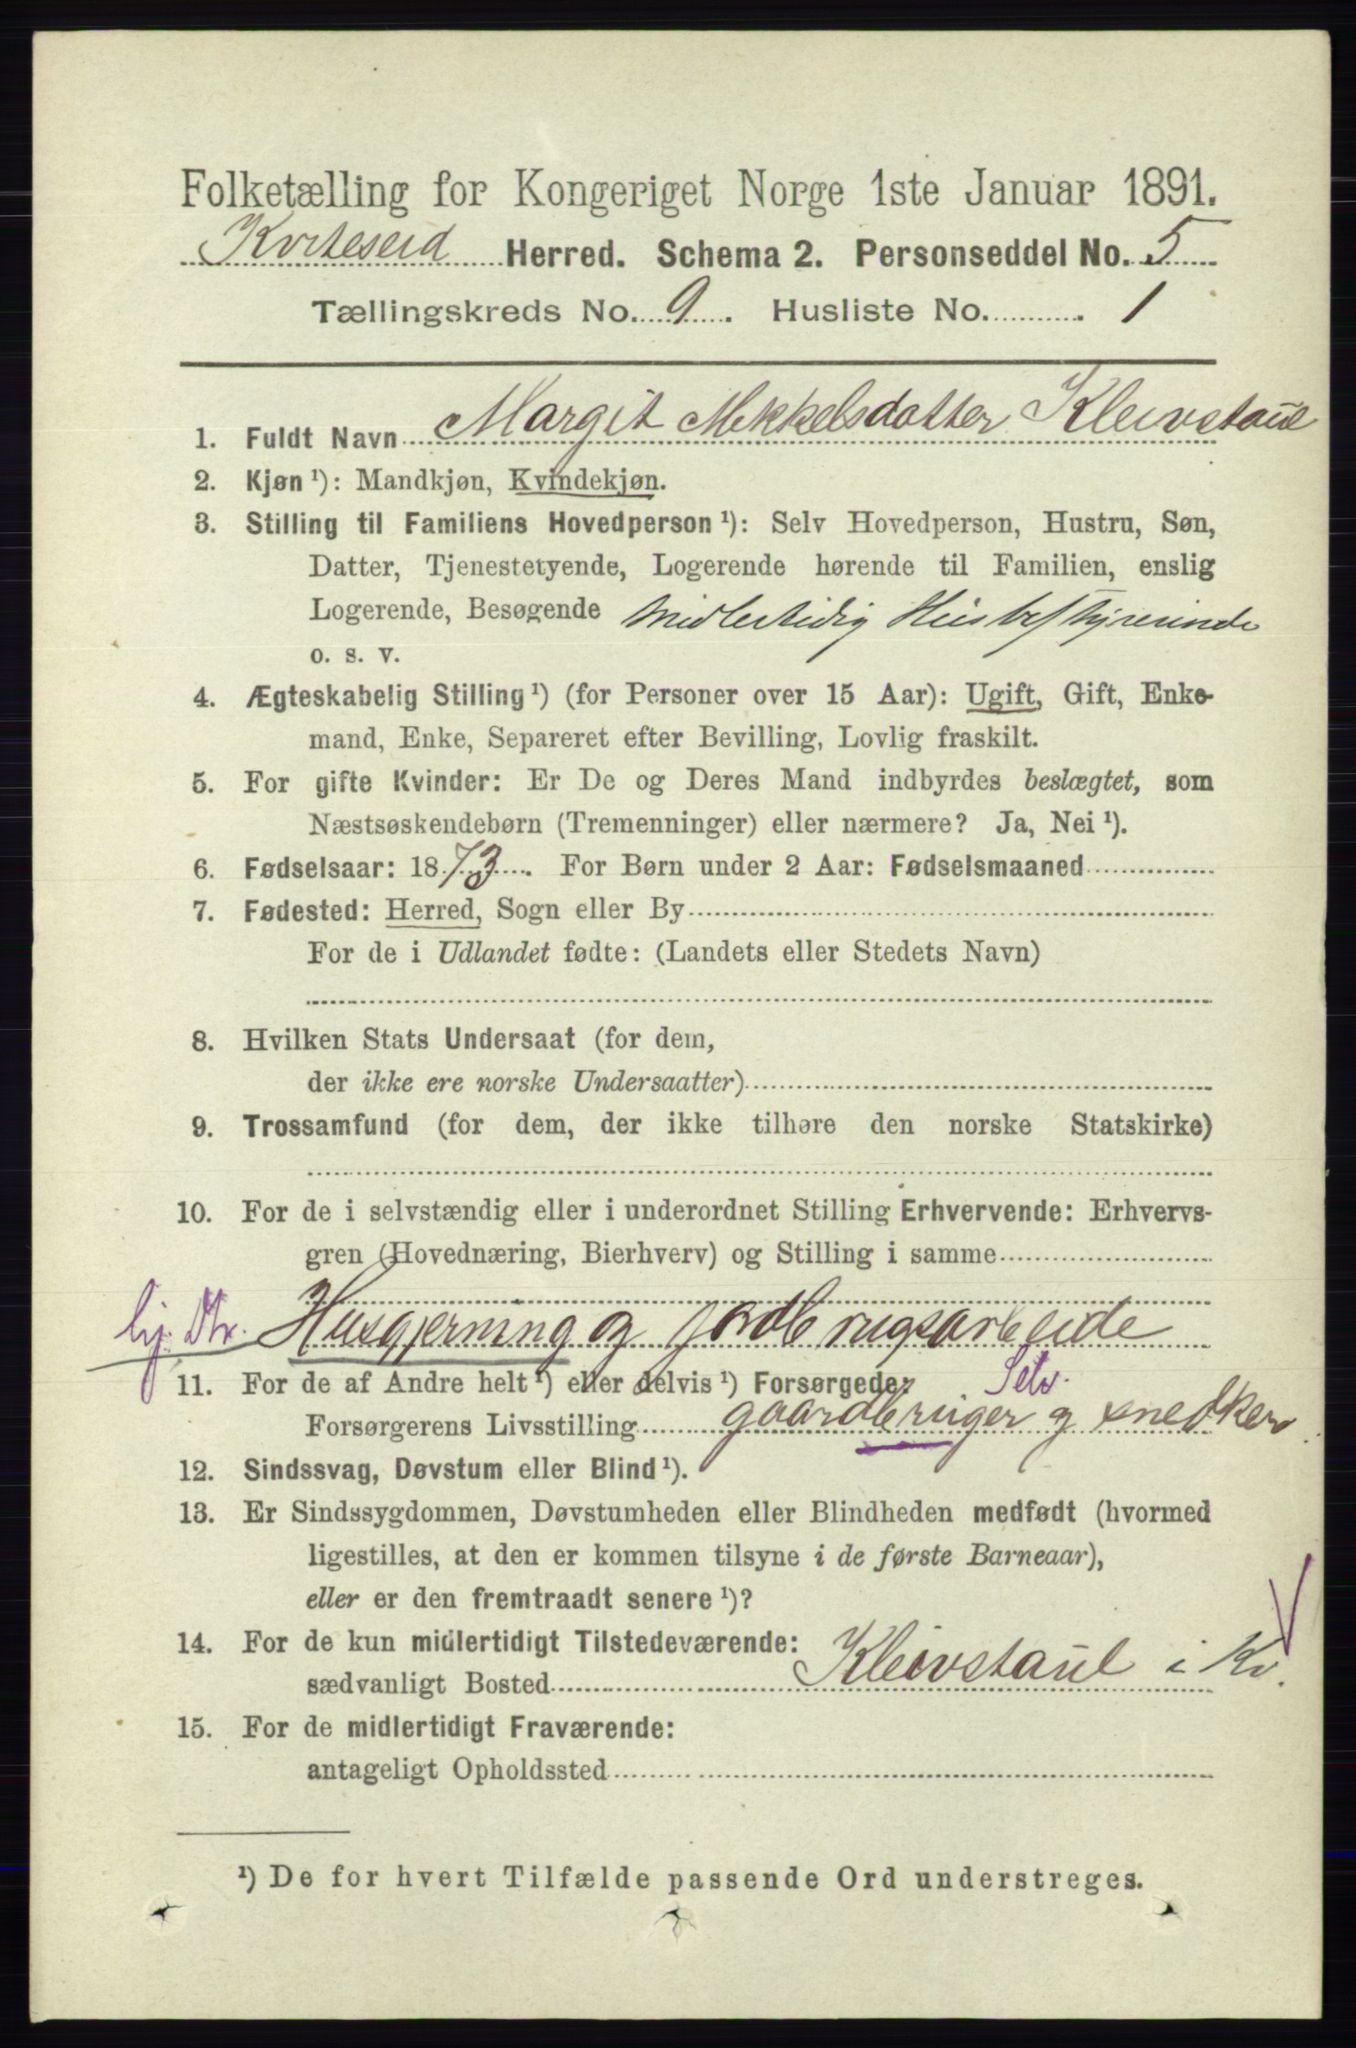 Folketælling for Kongeriget Norge 1ste Januar 1891.
Kviteseid Herred. Schema 2. Personseddel No. 5
Tællingskreds No. 9. Husliste No. 1
1. Fuldt Navn Margit Mekkelsdatter Kleivstaul
2. Kjøn ¹): Mandkjøn, Kvindekjøn.
3. Stilling til Familiens Hovedperson ¹): Selv Hovedperson, Hustru, Søn,
Datter, Tjenestetyende, Logerende hørende til Familien, enslig
Logerende, Besøgende Midlertidig Husbestyrerinde
o. s. v.
4. Ægteskabelig Stilling ¹) (for Personer over 15 Aar): Ugift, Gift, Enke-
mand, Enke, Separeret efter Bevilling, Lovlig fraskilt.
5. For gifte Kvinder: Er De og Deres Mand indbyrdes beslægtet, som
Næstsøskendebørn (Tremenninger) eller nærmere? Ja, Nei ¹).
6. Fødselsaar: 1873. For Børn under 2 Aar: Fødselsmaaned
7. Fødested: Herred, Sogn eller By
For de i Udlandet fødte: (Landets eller Stedets Navn)
8. Hvilken Stats Undersaat (for dem,
der ikke ere norske Undersaatter)
9. Trossamfund (for dem, der ikke tilhøre den norske Statskirke)
10. For de i selvstændig eller i underordnet Stilling Erhvervende: Erhvervs-
gren (Hovednæring, Bierhverv) og Stilling i samme
Husgjerning og jordbrugsarbeide
11. For de af Andre helt ¹) eller delvis ¹) Forsørgede: Selv.
Forsørgerens Livsstilling gaardbruger og snedker
12. Sindssvag, Døvstum eller Blind ¹).
13. Er Sindssygdommen, Døvstumheden eller Blindheden medfødt (hvormed
ligestilles, at den er kommen tilsyne i de første Barneaar),
eller er den fremtraadt senere ¹)?
14. For de kun midlertidigt Tilstedeværende:
sædvanligt Bosted Kleivstaul i Kv.
15. For de midlertidigt Fraværende:
antageligt Opholdssted
¹) De for hvert Tilfælde passende Ord understreges.